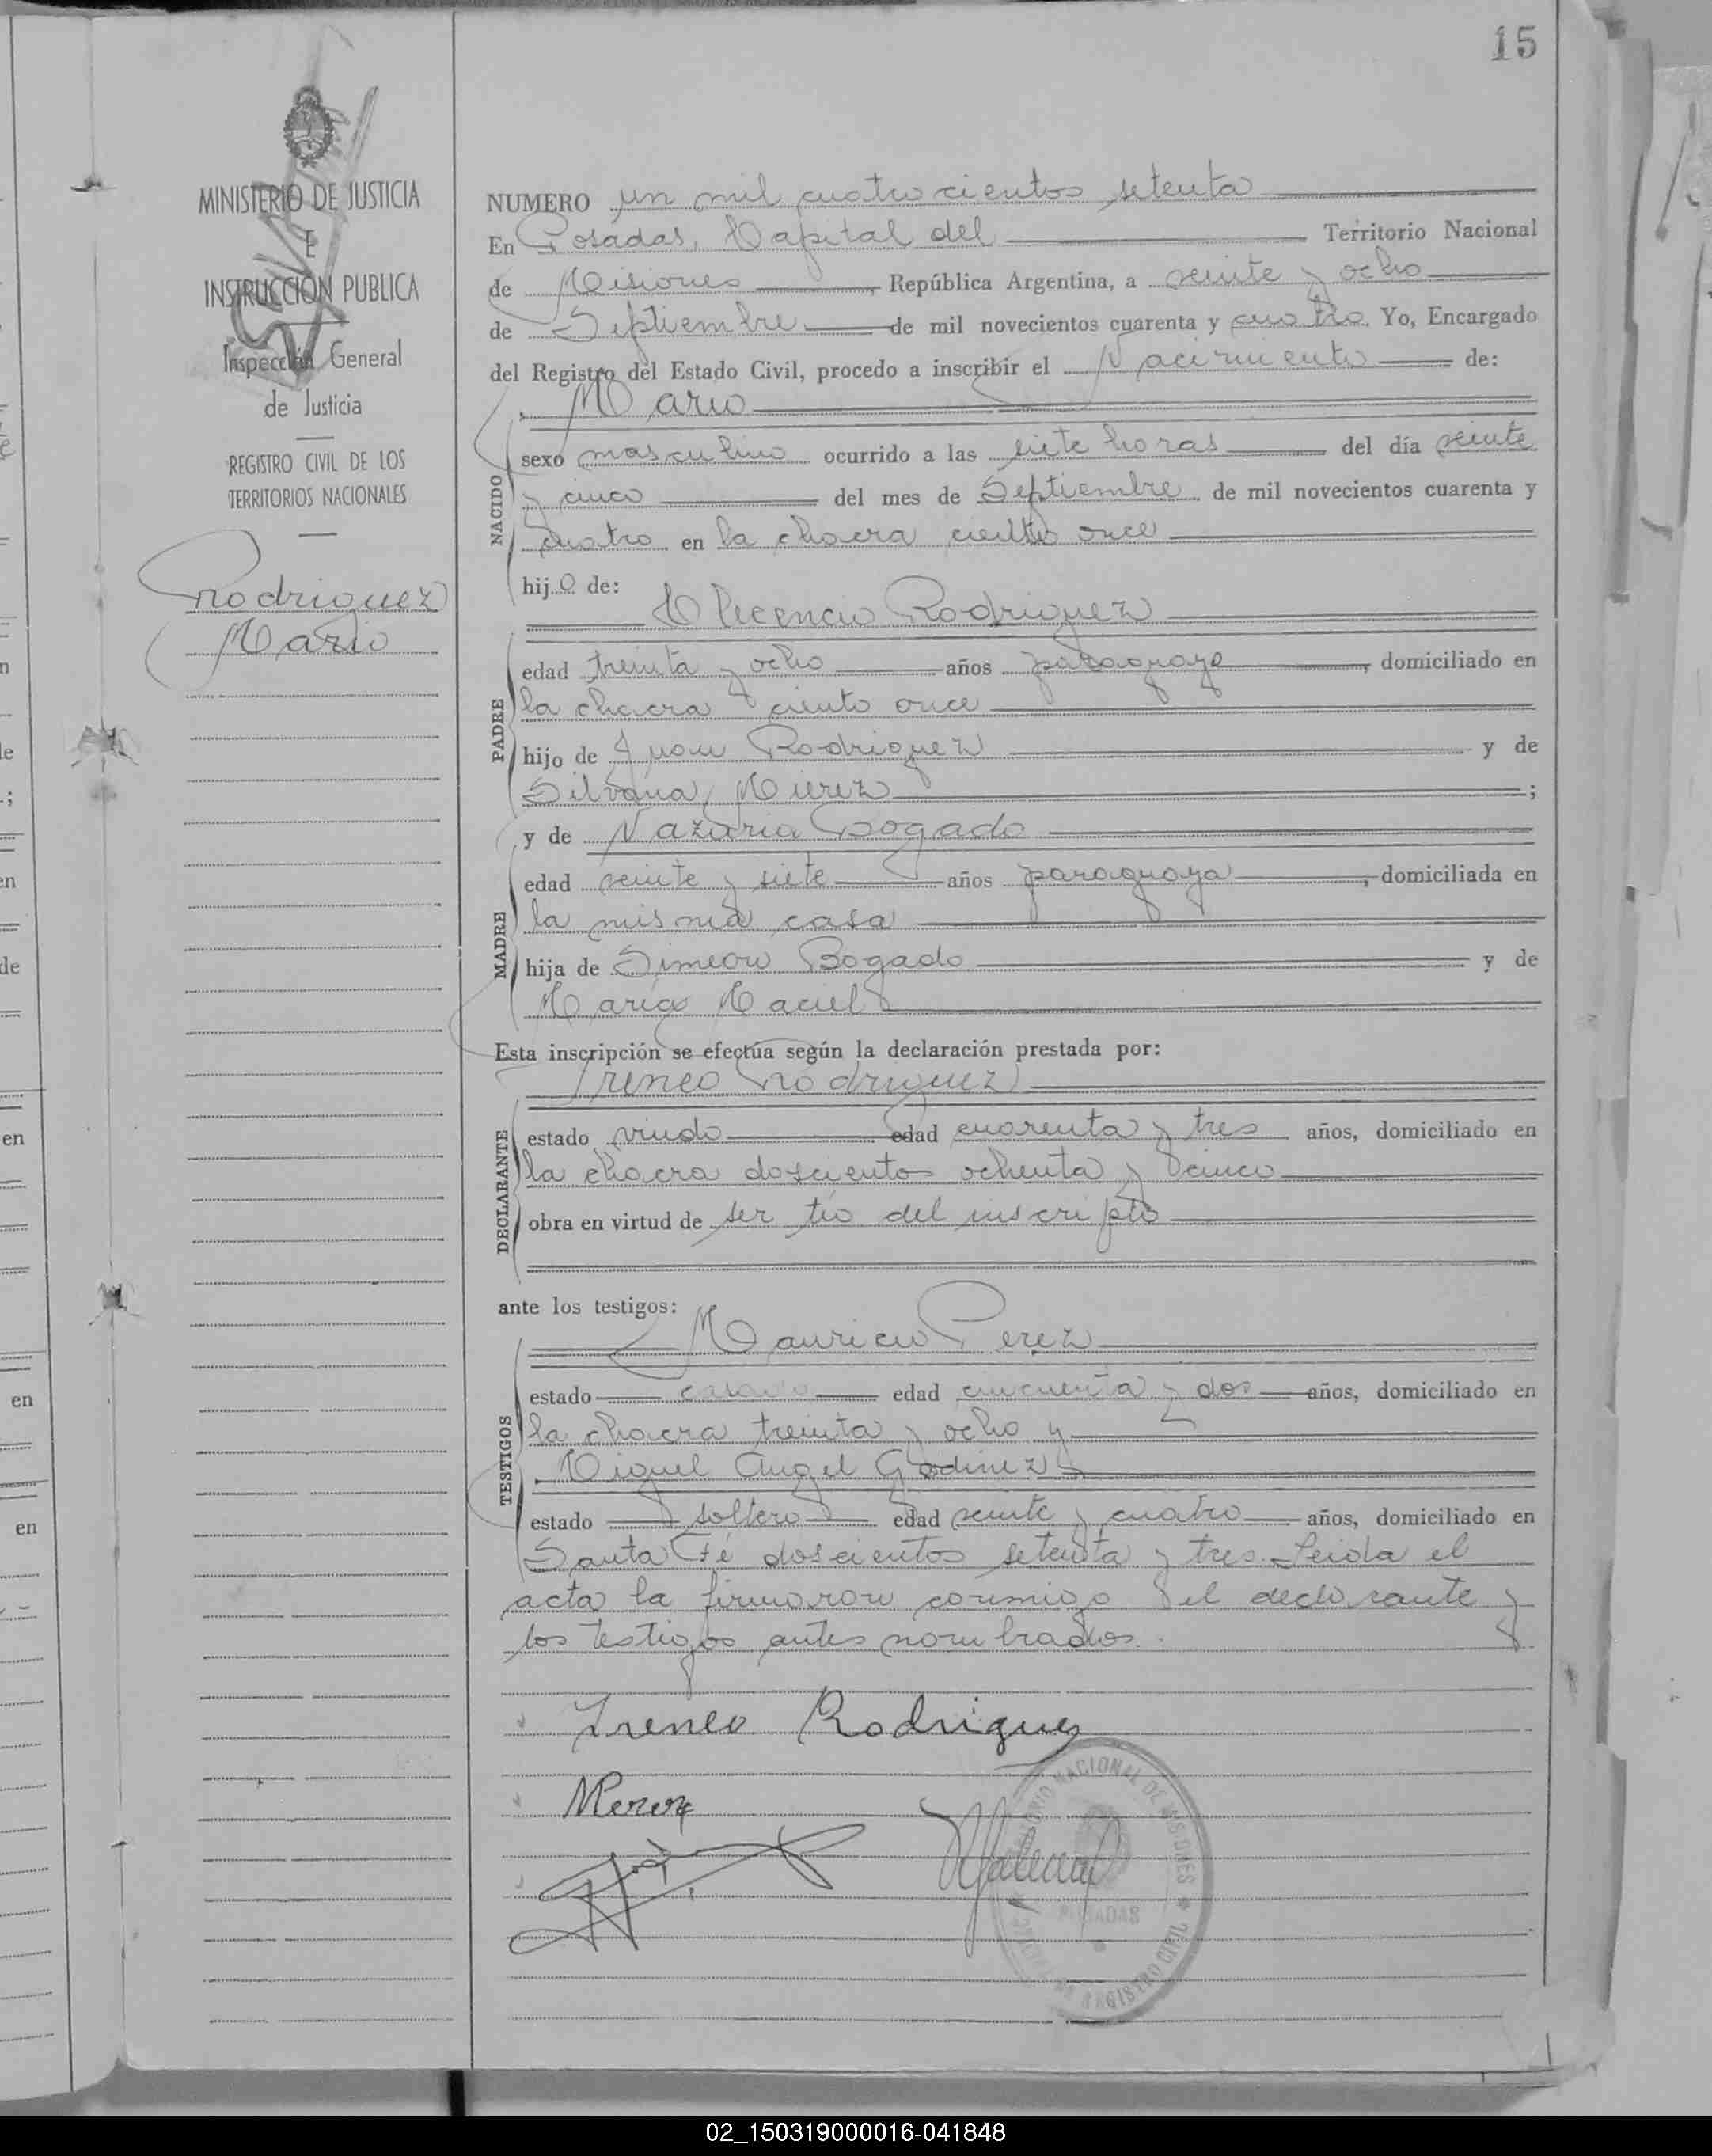 15
MINISTERIO DE JUSTICIA
E
INSTRUCCIÓN PUBLICA
Inspección General
de Justicia
REGISTRO CIVIL DE LOS
TERRITORIOS NACIONALES
Rodriguez
Mario
NUMERO un mil cuatrocientos setenta
En Posadas, Capital del Territorio Nacional
de Misiones, República Argentina, a veinte y ocho
de Septiembre de mil novecientos cuarenta y cuatro. Yo, Encargado
del Registro del Estado Civil, procedo a inscribir el Nacimiento de:
Mario
NACIDO
sexo masculino ocurrido a las siete horas del día veinte
y cinco del mes de Septiembre de mil novecientos cuarenta y
cuatro en la chacra ciento once
hijo de:
Rodriguez
PADRE
edad treinta y ocho años paraguayo, domiciliado en
la chacra ciento once
hijo de Juan Rodriguez y de
Silvana Mierez;
y de Nazaria Bogado
MADRE
edad veinte y siete años paraguaya, domiciliada en
la misma casa
hija de Simeon Bogado y de
Maria Maciel
Esta inscripción se efectúa según la declaración prestada por:
Ireneo Rodriguez
DECLARANTE
estado viudo edad cuarenta y tres años, domiciliado en
la chacra doscientos ochenta y cinco
obra en virtud de ser tio del inscripto
ante los testigos:
Mauricio Perez
TESTIGOS
estado casado edad cincuenta y dos años, domiciliado en
la chacra treinta y ocho y
Miguel Angel Godinez
estado soltero edad veinte y cuatro años, domiciliado en
Santa Fé doscientos setenta y tres. Leida el
acta la firmaron conmigo el declarante y
los testigos antes nombrados.
Ireneo Rodriguez
MPerez
TERRITORIO NACIONAL DE MISIONES
POSADAS
REGISTRO CIVIL
02_150319000016-041848